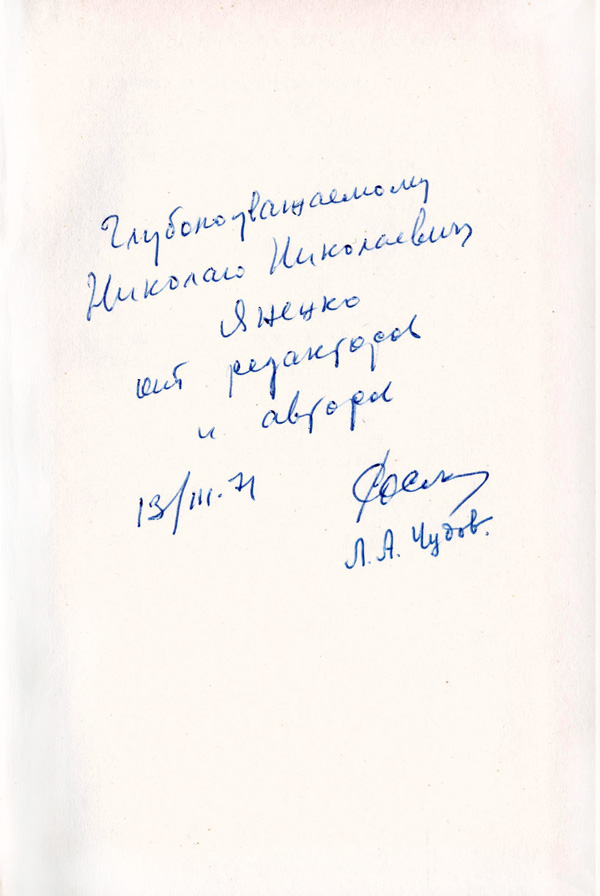 Глубокоуважаемому
Николаю Николаевичу
Яненко
от редактора
и автора
13/III-71
Л.А. Чудов.